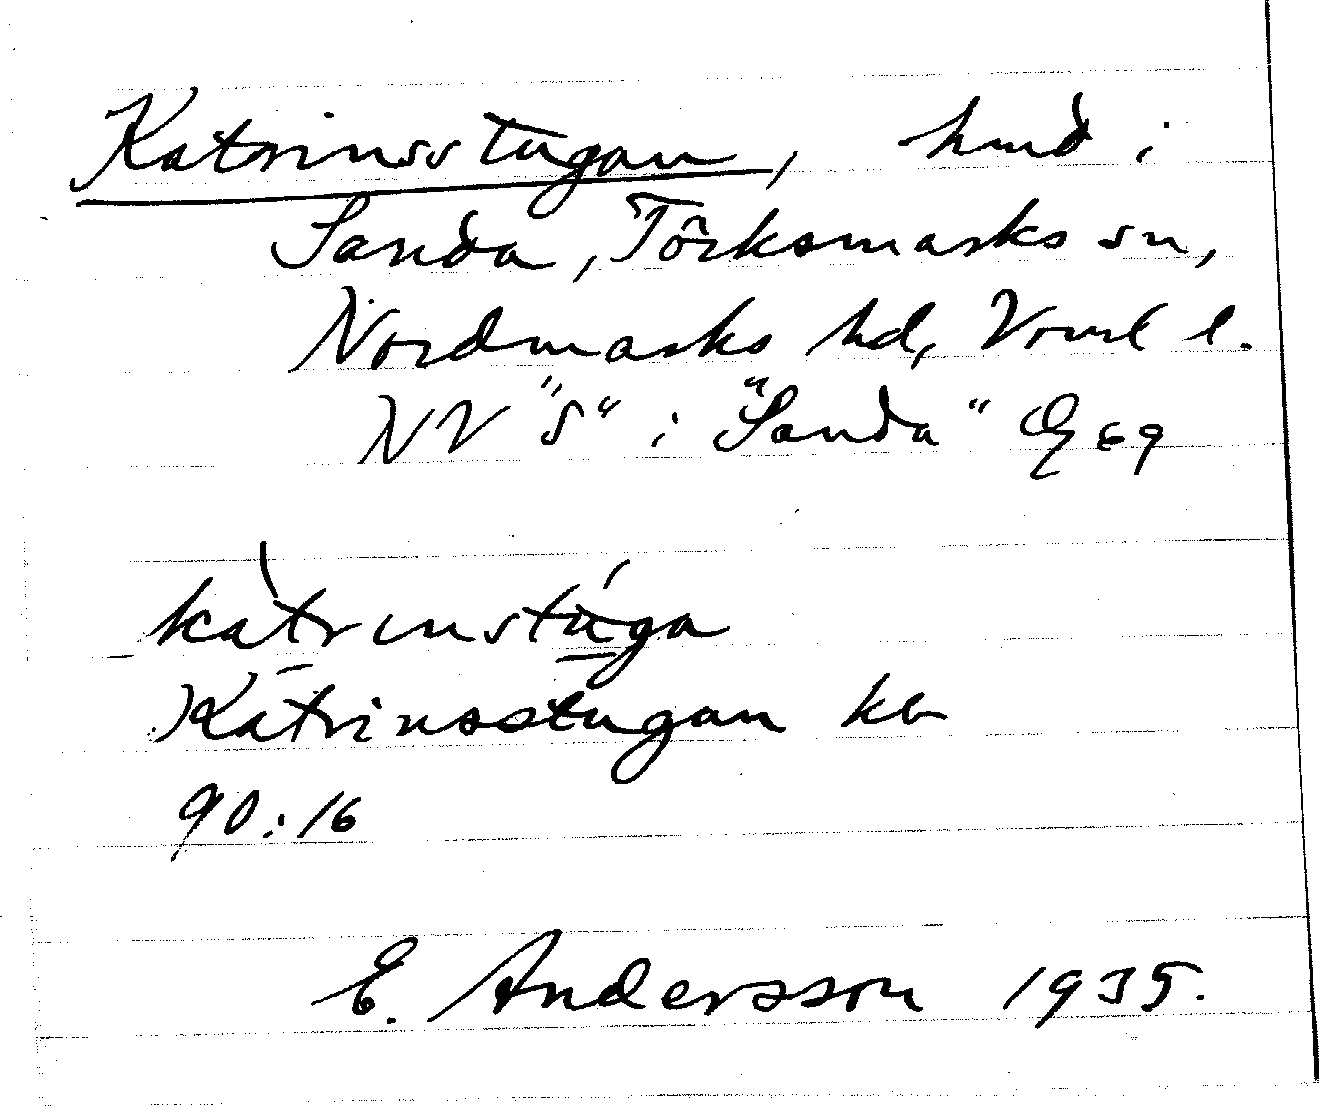 Katrinsstugan, hmd i
Sanda, Törksmarks sn,
Nordmarks hd, Vrml l.
NV "S" i "Sanda" Eg 69
kàtrinstúga
Katrinsstugan kb
90:16
E. Andersson 1935.